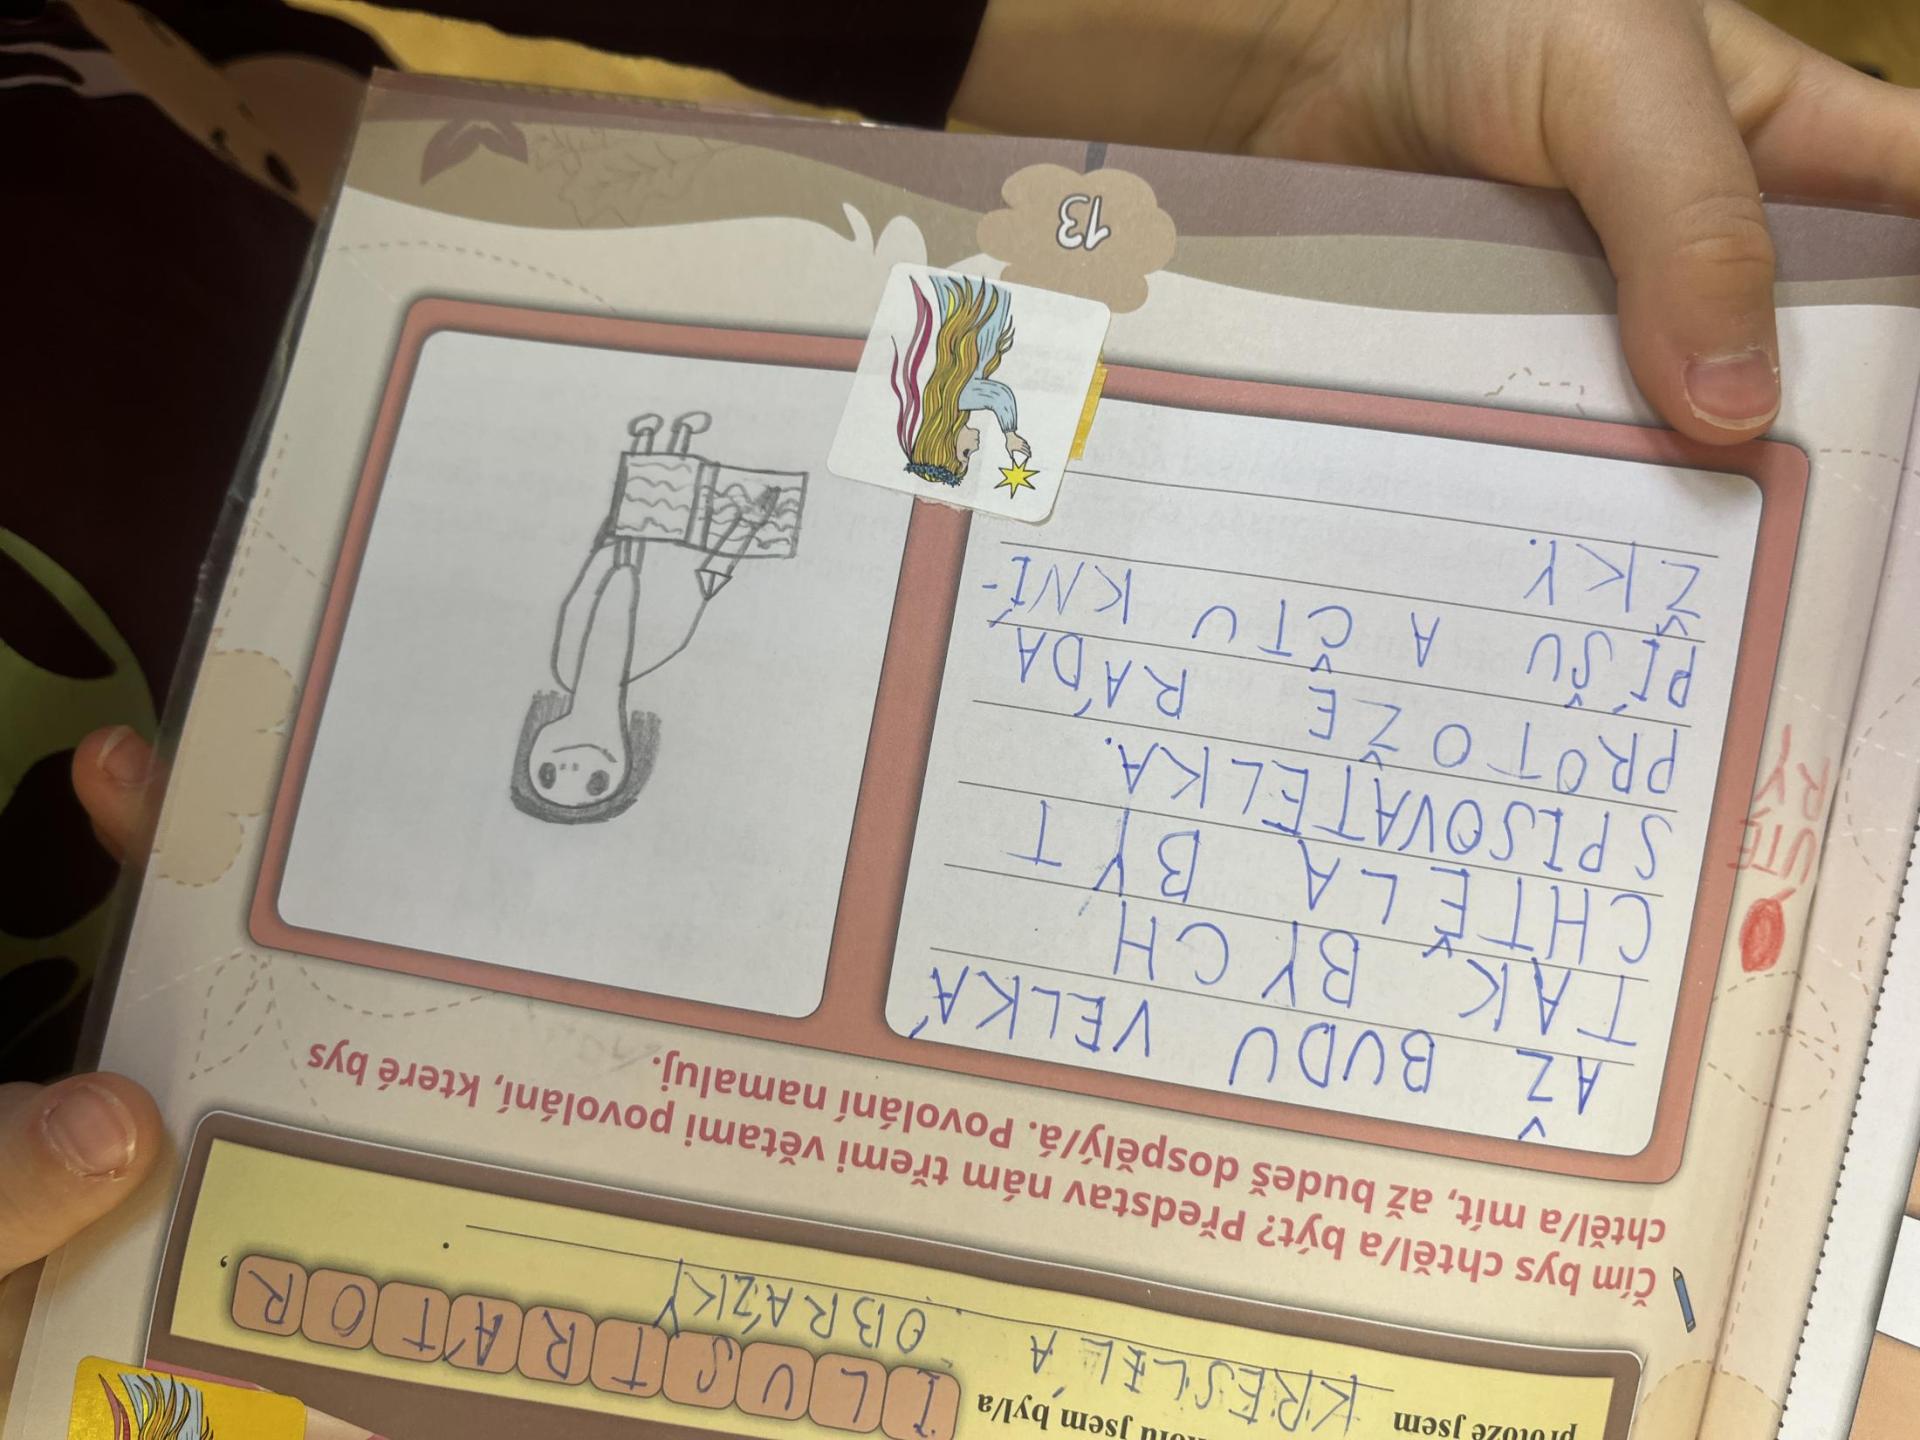 jsem byl/a
ILUSTRÁTOR,
protože jsem KRESLÍLA OBRÁZKY.
Čím bys chtěl/a být? Představ nám třemi větami povolání, které bys
chtěl/a mít, až budeš dospělý/á. Povolání namaluj.
AŽ BUDU VELKÁ
TAK BYCH
CHTĚLA BÝT
SPISOVATELKA.
PROTOŽE RÁDA
PÍŠU A ČTU KNÍ-
ŽKY.
ÚTE
RÝ
13